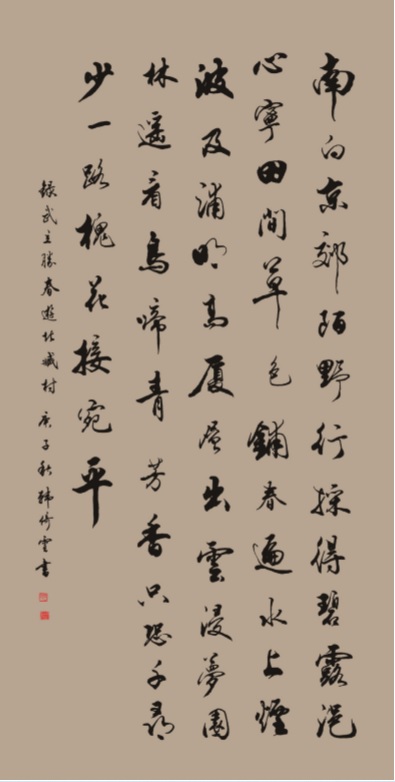 南向京郊陌野行採得碧露浥
心寧田間草色鋪春遍水上煙
波及浦明高厦出雲浸夢園
林遥看鳥啼青芳香只恐千尋
少一路槐花接宛平
録武立勝春遊北臧村 庚子秋韓倚雲書